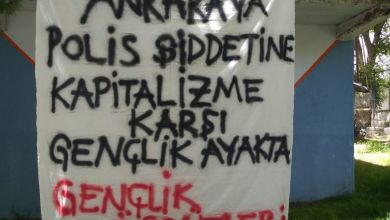 ANKARAYA
POLİS ŞİDDETİNE
KAPİTALİZME
KARŞI
GENÇLİK AYAKTA
GENÇLİK